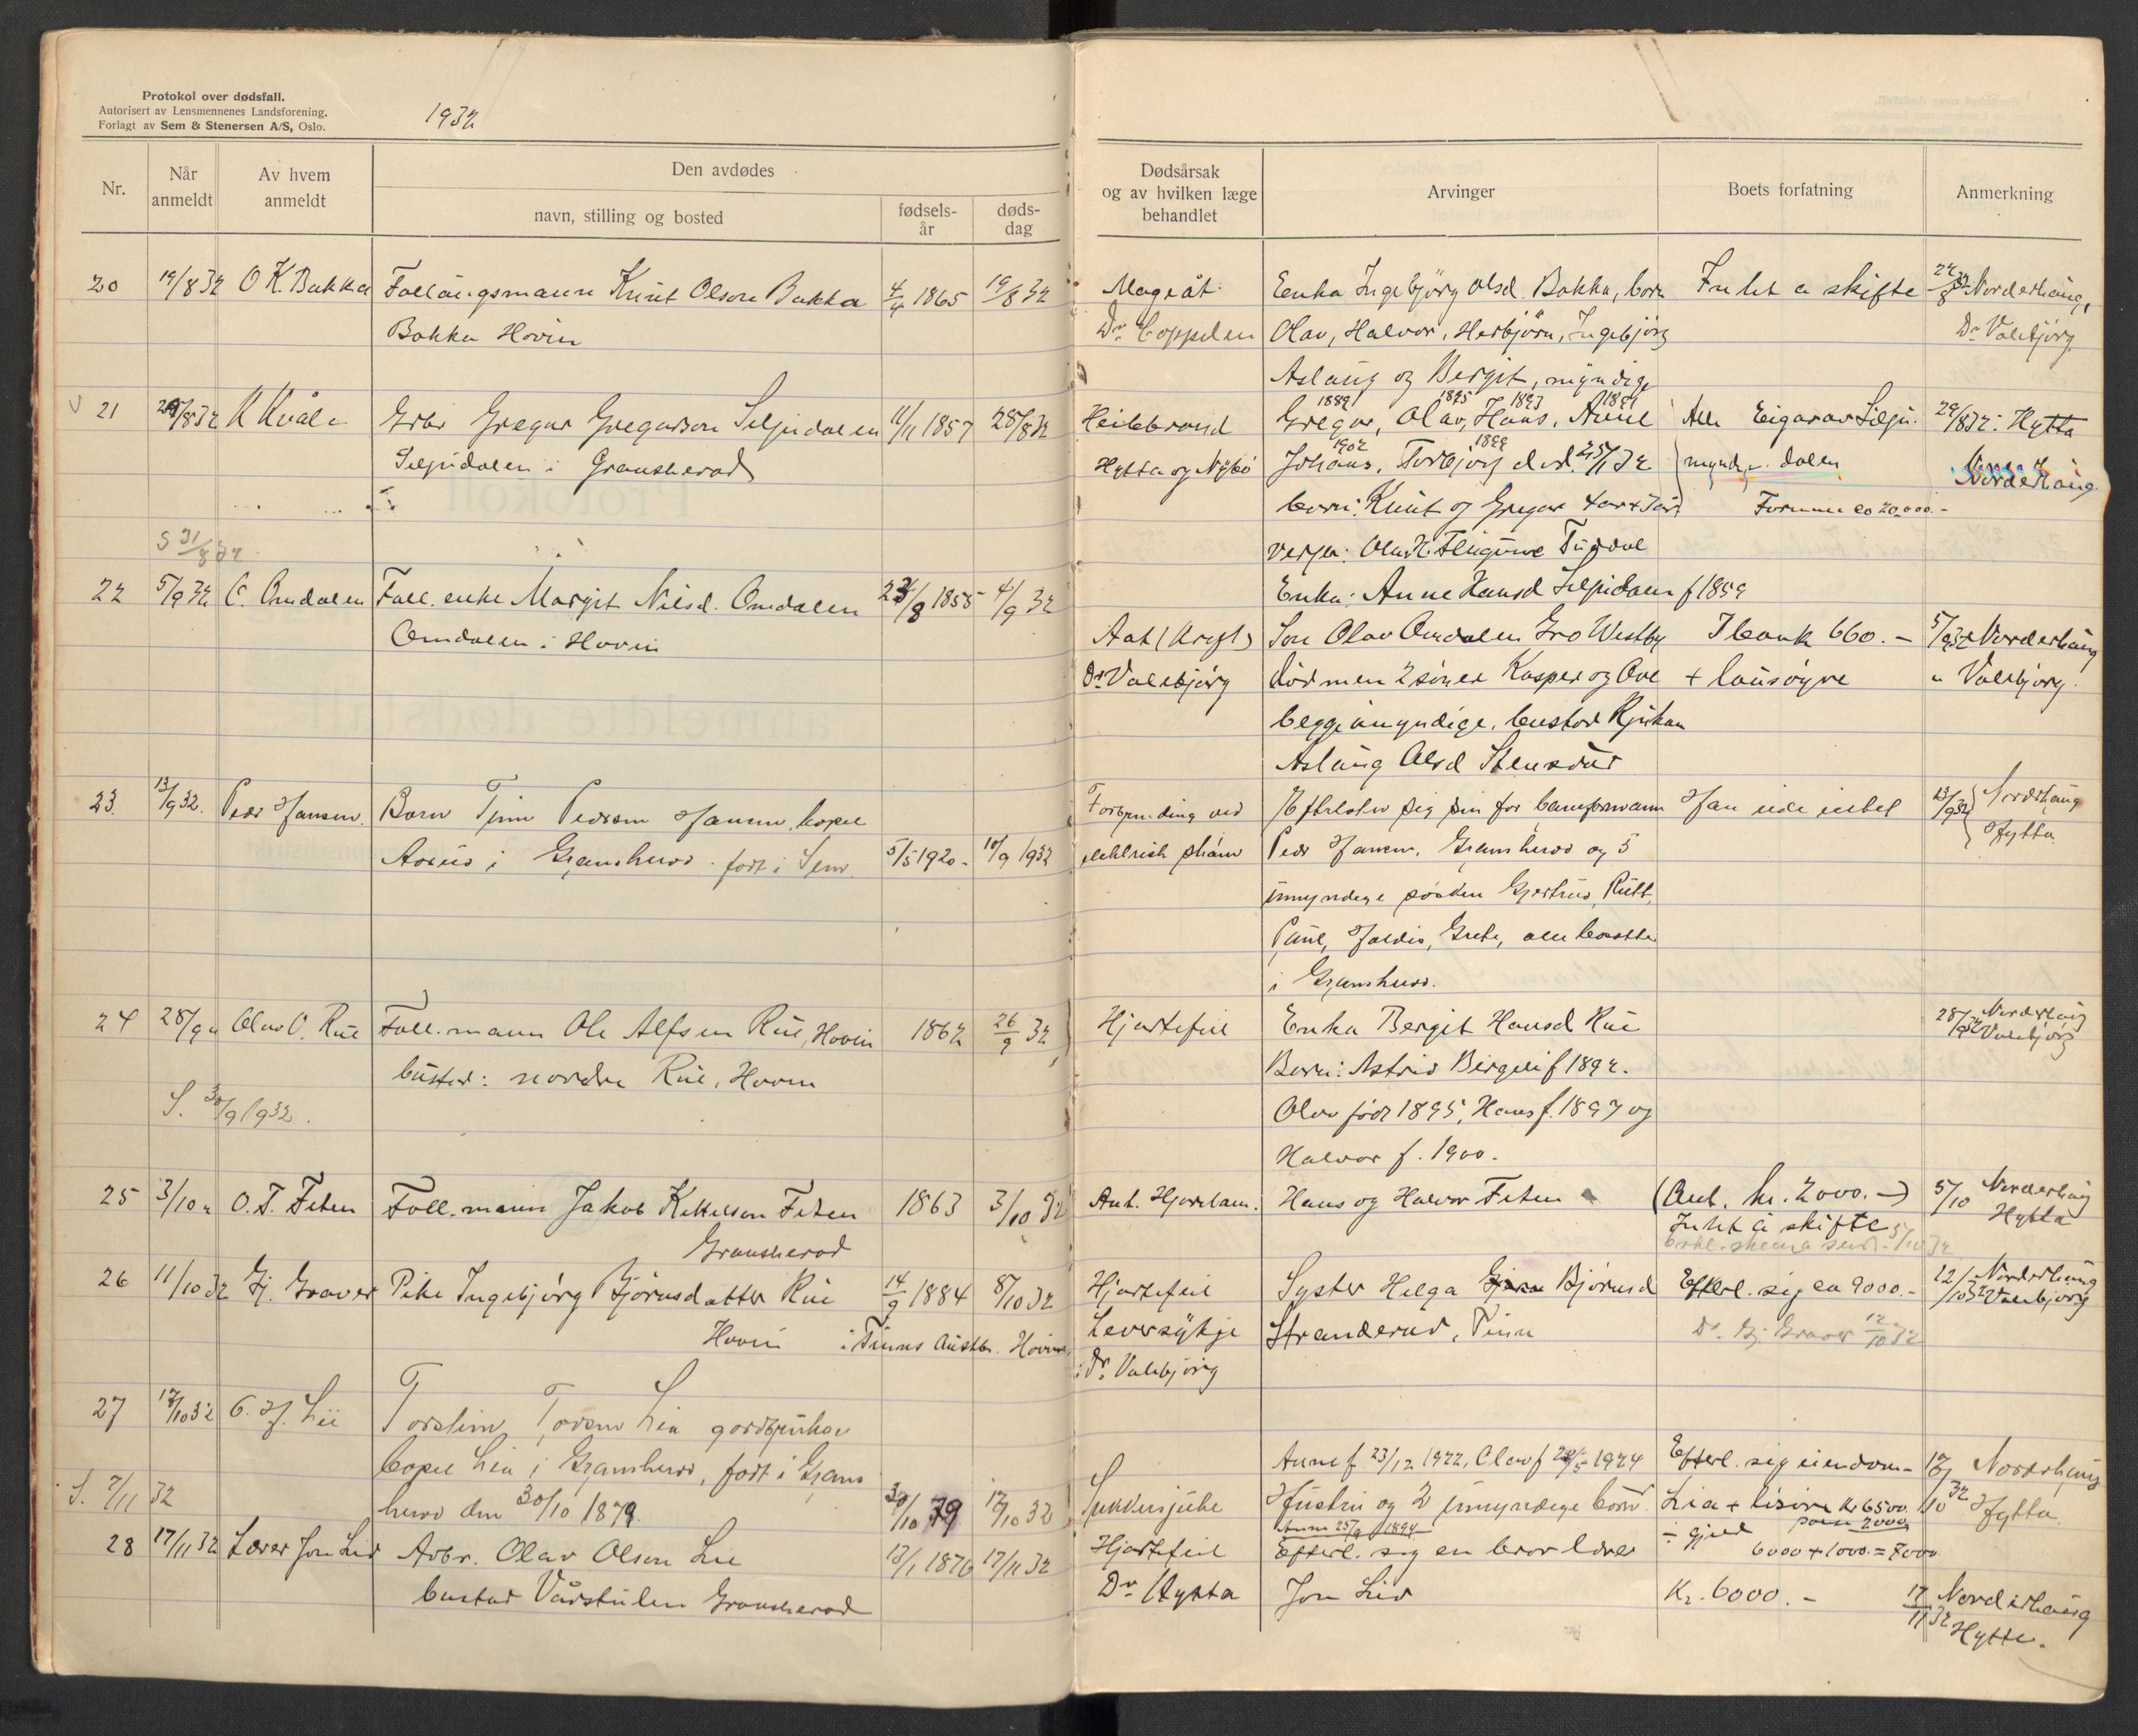 Protokol over dødsfall.
Autorisert av Lensmennenes Landsforening.
Forlagt av Sem & Stenersen A/S, Oslo.
1932
Nr.
Når anmeldt
Av hvem anmeldt
Den avdødes
navn, stilling og bosted
fødsels-år
døds-dag
Dødsårsak og av hvilken læge behandlet
Arvinger
Boets forfatning
Anmerkning
20 19/8 32 O K. Bakka Follaugsmann Knut Olson Bakka 4/4 1865 19/8 32 Mageåt Enka Ingebjörg Olsd. Bakka, born 24/8 32 Norderhaug,
Bakka Hovin Dr Olav, Halvor, Herbjörn, Ingebjörg Dr Valebjörg
Aslaug og Bergit, myndige
1889 1895 1893 1891
21 29/8 32 K Kvåle Grbr Gregar Gregarson Seljudalen 11/1 1857 28/8 32 Heilebrand Gregar, Olav, Hans, Anne Alle Eigar av Selju- 29/8 32: Hytta
1902 1899
Seljudalen i Gransherad Hytta og Nybö Johans, Torbjorg död 25/1 32 mynd. dalen Norderhaug
born: Knut og Gregar 4 ar + 3 ar Formue ca 20,000.-
S 31/8 32
verger: Tuddal
Enka: Anne Hansd Seljudalen f 1859
22 5/9 32 O. Omdalen Foll. enke Margit Nilsd. Omdalen 23/8 1855 4/9 32
Omdalen i Hovin Aat (Kreft) Son Olav Omdalen Gro Westby I bank 660.- 5/9 32 Norderhaug
Dr Valebjörg död men 2 söner Kasper og Ove + lausöyre " Valebjörg.
begge umyndige, bustad Rjukan
Aslaug Olsd
23. 13/9 32. Peder Hansen. Barn Finn Pedersen Hansen, bopel Forbrending ved Efterlater sig sin far banеformann Han eide intet 13/9 32 Norderhaug
i Gransherad. født i Sem 5/5 1920- 10/9 1932 elektrisk strøm Peder Hansen, Gransherad og 5 Hytta
umyndige søsken Gjertrud, Rutt,
Paul, Haldis, Grete, alle bosatte
i Gransherad.
24 28/9 " Olav O. Rue Foll. mann Ole Alfsen Rue, Hovin 1862 26/9 32 Hjartefeil Enka Bergit Hansd Rue 28/9 32 Norderhaug
bustad: nordre Rue, Hovin Born: Astrid Birgeli f 1892. Valebjörg
S. 30/9 1932. Olav född 1895, Hans f. 1897 og
Halvor f. 1900.
25 3/10 " O. J. Feten Foll. mann Jakob Kittilson Feten 1863 3/10 32 Ant. Hjartelam. Hans og Halvor Feten (Ant. kr. 2000.-) 5/10 Norderhaug
Gransherad Inkt å skifte Hytta
26 11/10 32 Gj. Graver Pike Ingebjörg Björnsdatter Rue 14/9 1884 8/10 32 Hjartefeil Syster Helga Björnsd Efterl. sig ca 9000.- 12/10 32 Norderhaug
Hovin i Tinns Austbr. Hovin Leversykje Stranderud, Tinn Dr. Gj Graver 12/10 32 Valebjörg
Dr Valebjörg
27 17/10 32 O. H. Lii Torstein Torsen Lia gardbruker
bopel Lia i Gransherad, født i Grans Anne f 23/12 1922, Olav f 1924 Efterl. sig eiendom- 17/10 32 Norderhaug
S. 7/11 32 herad den 30/10 1879. 30/10 79 17/10 32 Sukkersjuke Hustru og 2 umyndige born Lia + lisøre kr 6500. Hytta
Anne 25/9 1894 - gjeld 2000
28 17/11 32 Lærer Jon Lid Arbr. Olav Olson Lie 13/1 1876 17/11 32 Hjartefeil Efterl. sig en bror lærer 6000 + 1000.= 7000
bustad Vårstulen Gransherad Dr Hytta Jon Lid Kr. 6000.- 17/11 32 Norderhaug
Hytte.